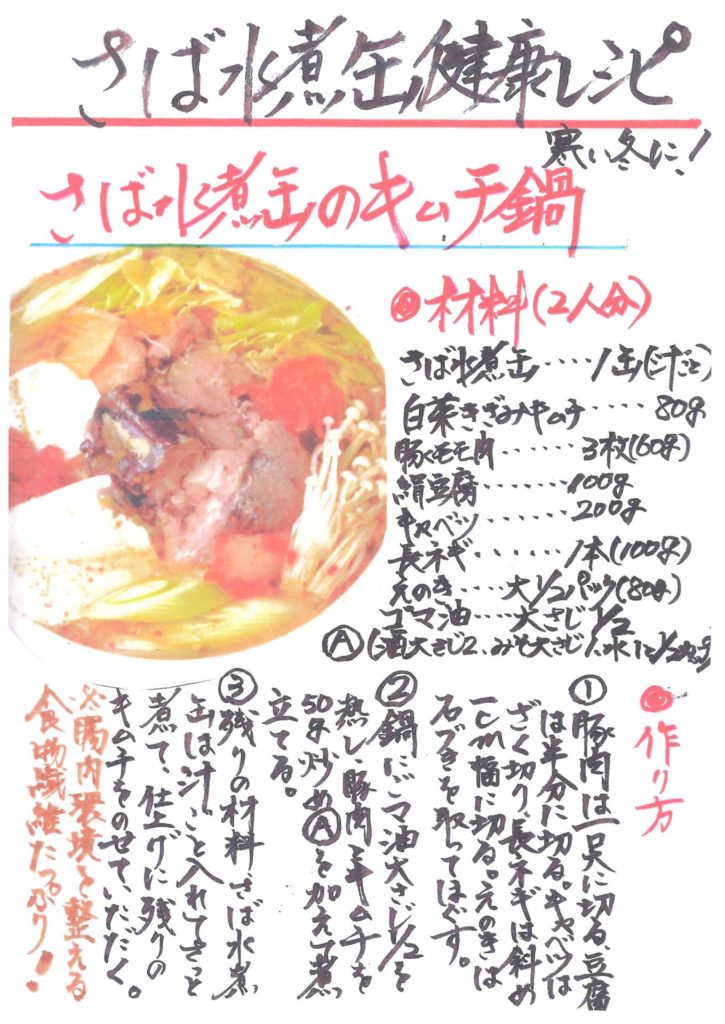 さば水煮缶健康レシピ
寒い冬に!
さば水煮缶のキムチ鍋
◎材料(2人分)
さば水煮缶‥‥1缶(汁ごと)
白菜きざみキムチ‥‥‥80g
豚モモ肉‥‥‥3枚(60g)
絹豆腐‥‥‥100g
キャベツ‥‥‥200g
長ネギ‥‥‥1本(100g)
えのき‥‥大1/2パック(80g)
ゴマ油‥‥大さじ1/2
Ⓐ(酒大さじ2、みそ大さじ1、水1と1/2カップ
◎作り方
①豚肉は一口大に切る、豆腐
は半分に切る。キャベツは
ざく切り、長ネギは斜め
1cm幅に切る。えのきは
石づきを取ってほぐす。
②鍋にゴマ油大さじ1/2を
熱し、豚肉とキムチを
50g炒めⒶを加えて煮
立てる。
③残りの材料、さば水煮
缶は汁ごと入れてさっと
煮て、仕上げに残りの
キムチをのせていただく。
※腸内環境を整える
食物繊維たっぷり!